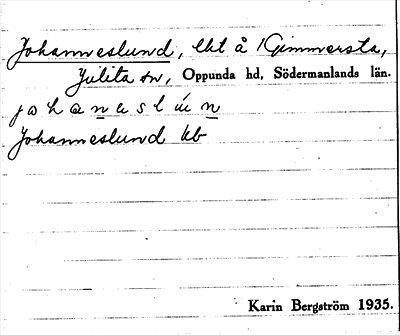 Johanneslund, lht å 1 Gimmersta,
Julita sn, Oppunda hd, Södermanlands län.
johaneslún
Johanneslund kb
Karin Bergström 1935.